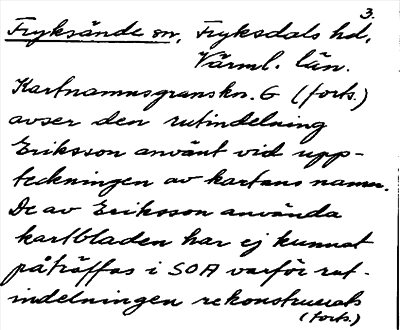 3.
Fryksände sn. Fryksdals hd.
Värml. län.
Kartnamnsgranskn. G (forts.)
avser den rutindelning
Eriksson använt vid upp-
teckningen av kartans namn.
De av Eriksson använda
kartbladen har ej kunnat
påträffas i SOA varför rut-
indelningen rekonstruerats
(forts.)